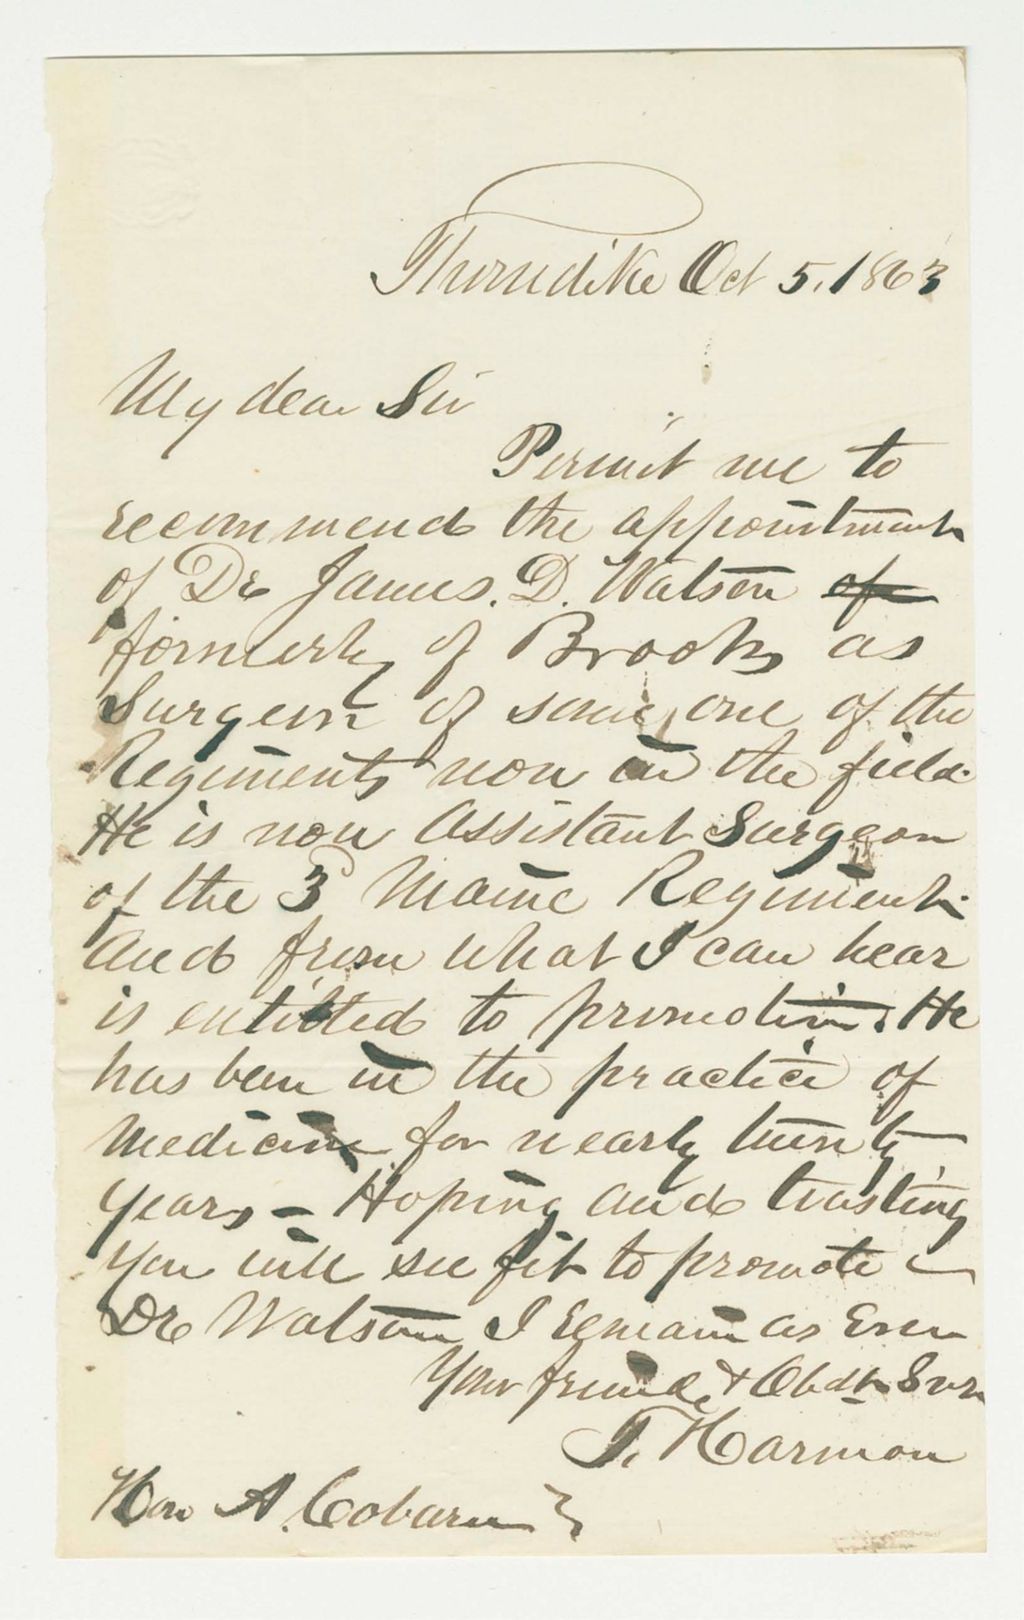 Thorndike Oct 5, 1863
My dear Sir
Permit me to
recommend the appointment
of Dr James. D. Watson of
formerly of Brooks as
Surgeon of some one of the
Regiments now in the field.
He is now Assistant Surgeon
of the 3 Maine Regiment.
and from what I can hear
is entitled to promotion. He
has been in the practice of
Medicine for nearly twenty
years - Hoping and trusting
you will see fit to promote
Dr Watson I remain as Ever
Your friend & Obdt Svn
T. Harmon
Hon A. Coburn